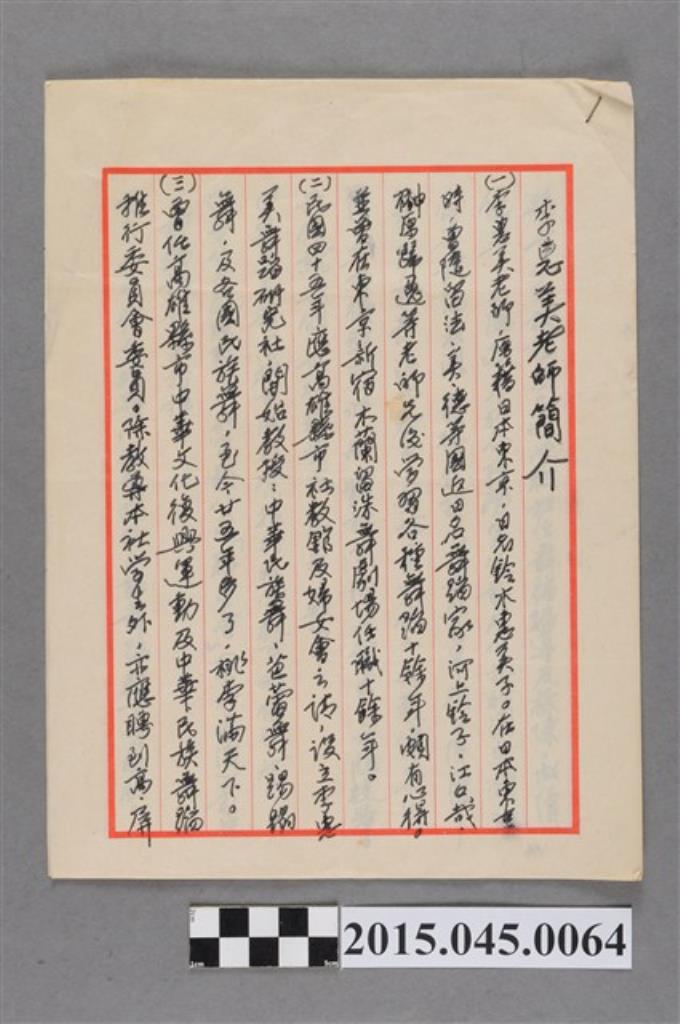 李惠美老師簡介
(一)李惠美老師,原籍日本東京,日名鈴木惠美子。在日本東京
時,曾隨留法、美、德等國返日名舞蹈家,河上鈴子、江口哉、
榊原歸逸等老師先後学習各種舞蹈十餘年,頗有心得。
並曾在東京新宿木蘭留洙舞劇場任職十餘年。
(二)民國四十五年應高雄縣市社教館及婦女會之請,設立李惠
美舞蹈研究社,開始教授:中華民族舞、芭蕾舞、踢躂
舞,及各國民族舞,至今廿五年多了,桃李滿天下。
(三)曾任高雄縣市中華文化復興運動及中華民族舞蹈
推行委員會委員。除教導本社学生外,亦應聘到高、屏
2015.045.0064
1cm
5cm